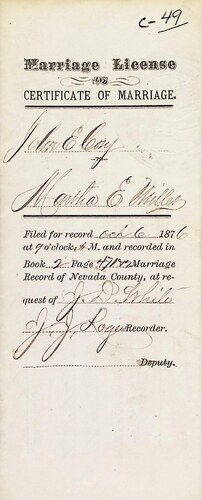 C-49
Marriage License
AND
CERTIFICATE OF MARRIAGE.
John E Coy
to
Martha E Miller
Filed for record Oct 6 1876
at 9 o'clock A M. and recorded in
Book 2 Page Marriage
Record of Nevada County, at re-
quest of J. D. White
J. J. Rogers Recorder.
Deputy.